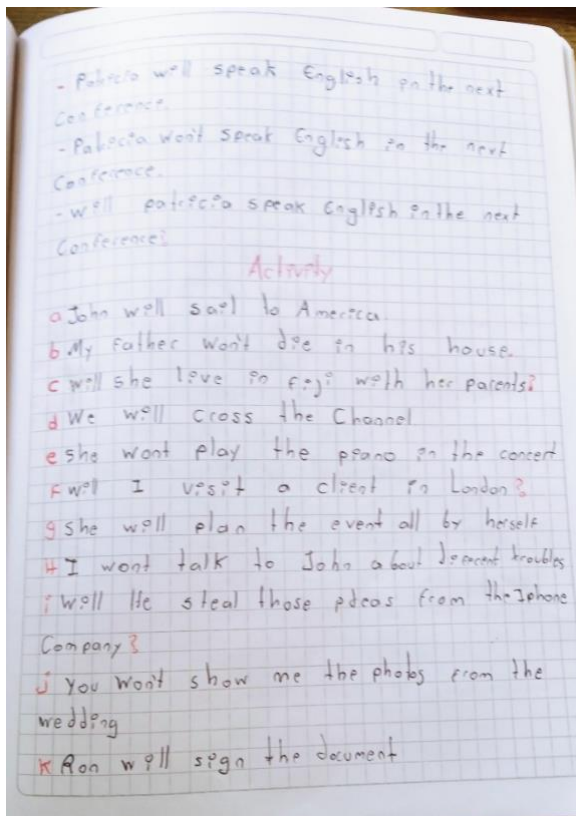 - Patricia will speak English in the next
Conference.
- Patricia won't speak English in the next
Conference.
- will patricia speak English in the next
Conference?
Activity
a John will sail to America
b My father won't die in his house.
c will she live in Fiji with her parents?
d We will cross the Channel
e she wont play the piano in the concert
F will I visit a client in London?
g she will plan the event all by herself
H I wont talk to John about troubles
i will He steal those ideas from the Iphone
Company?
j You won't show me the photos from the
wedding
K Ron will sign the document